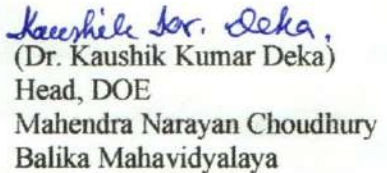 Kaushik Kr. Deka.
(Dr. Kaushik Kumar Deka)
Head, DOE
Mahendra Narayan Choudhury
Balika Mahavidyalaya